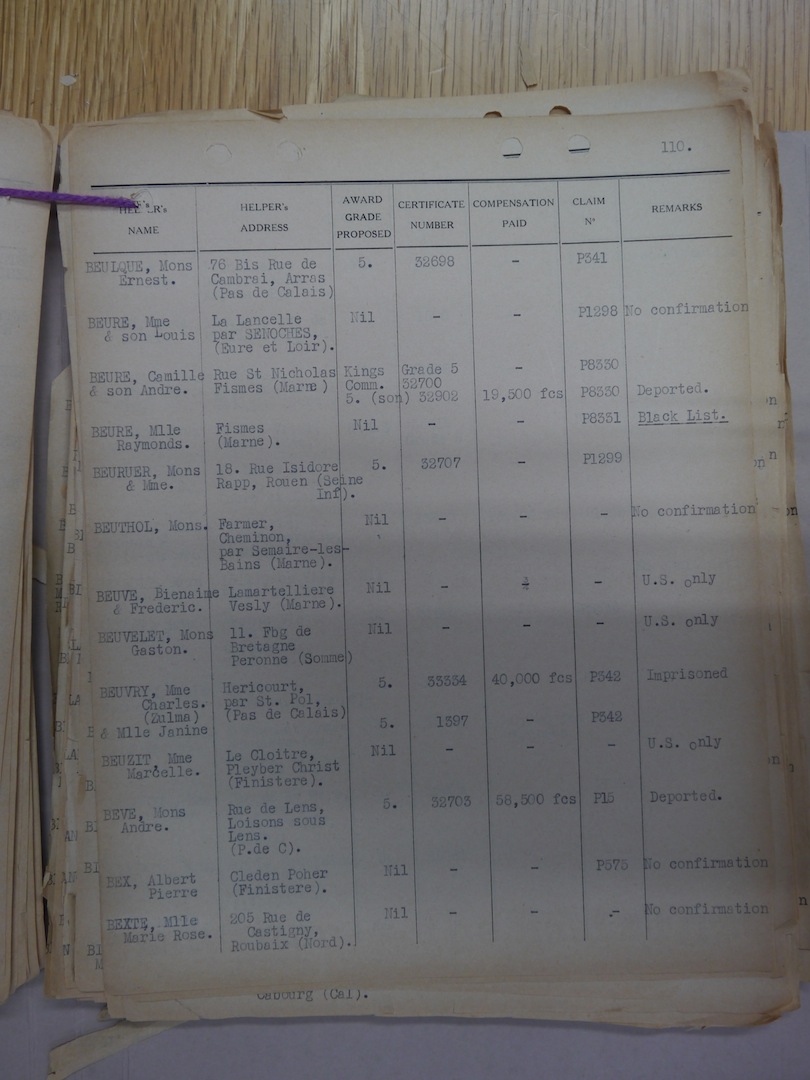 110.
HELPER's NAME | HELPER's ADDRESS | AWARD GRADE PROPOSED | CERTIFICATE NUMBER | COMPENSATION PAID | CLAIM Nº | REMARKS
BEULQUE, Mons | 76 Bis Rue de | 5. | 32698 | - | P341
Ernest. | Cambrai, Arras
(Pas de Calais)
BEURE, Mme | La Lancelle | Nil | - | - | P1298 | No confirmation
& son Louis | par SENOCHES,
(Eure et Loir).
BEURE, Camille | Rue St Nicholas | Kings | Grade 5 | - | P8330
& son Andre. | Fismes (Marne) | Comm. | 32700
5. (son) | 32902 | 19,500 fcs | P8330 | Deported.
BEURE, Mlle | Fismes | Nil | - | - | P8331 | Black List.
Raymonds. | (Marne).
BEURUER, Mons | 18. Rue Isidore | 5. | 32707 | - | P1299
& Mme. | Rapp, Rouen (Seine
Inf).
BEUTHOL, Mons. | Farmer, | Nil | - | - | - | No confirmation
Cheminon,
par Semaire-les-
Bains (Marne).
BEUVE, Bienaime | Lamartelliere | Nil | - | - | - | U.S. only
& Frederic. | Vesly (Marne).
BEUVELET, Mons | 11. Fbg de | Nil | - | - | - | U.S. only
Gaston. | Bretagne
Peronne (Somme)
BEUVRY, Mme | Hericourt, | 5. | 33334 | 40,000 fcs | P342 | Imprisoned
Charles. | par St. Pol,
(Zulma) | (Pas de Calais)
& Mlle Janine | 5. | 1397 | - | P342
BEUZIT, Mme | Le Cloitre, | Nil | - | - | - | U.S. only
Marcelle. | Pleyber Christ
(Finistere).
BEVE, Mons | Rue de Lens, | 5. | 32703 | 58,500 fcs | P15 | Deported.
Andre. | Loisons sous
Lens.
(P.de C).
BEX, Albert | Cleden Poher | Nil | - | - | P575 | No confirmation
Pierre | (Finistere).
BEXTE, Mlle | 205 Rue de | Nil | - | - | - | No confirmation
Marie Rose. | Castigny,
Roubaix (Nord).
Cabourg (Cal).